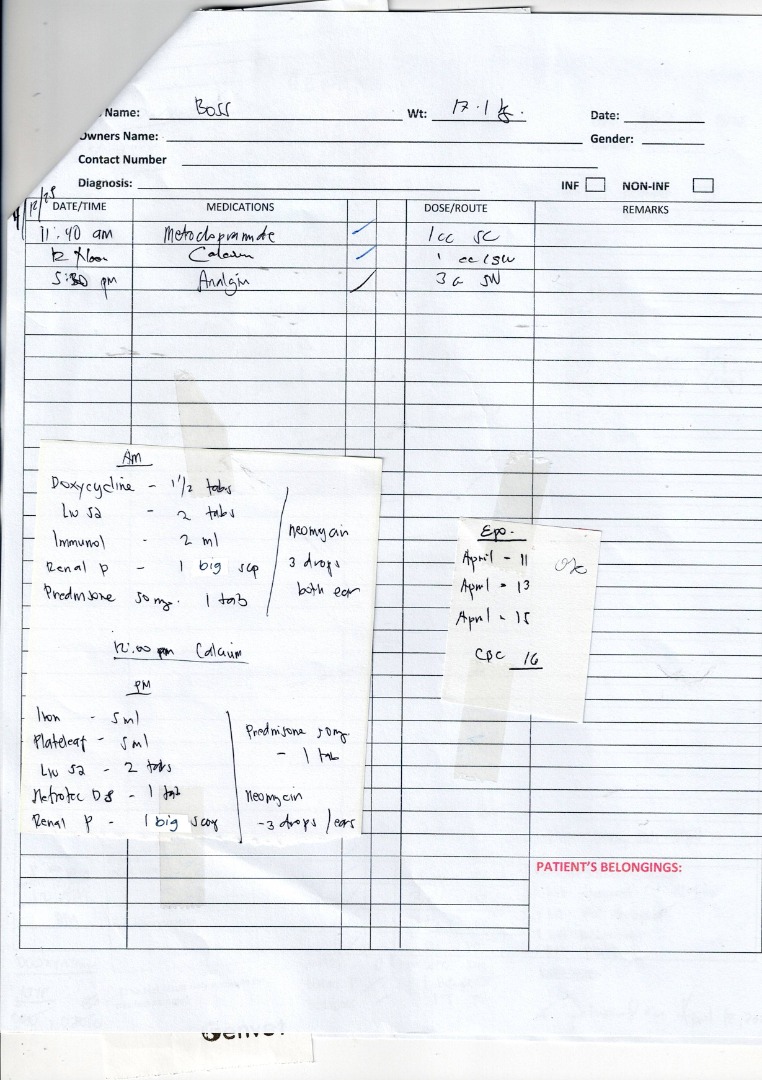 Name: Boss Wt: 17.1 kg. Date:
Owners Name: Gender:
Contact Number
Diagnosis: INF NON-INF
DATE/TIME MEDICATIONS DOSE/ROUTE REMARKS
11:40 am Metoclopramide 1cc SC
12 Noon Calcium 1 cc
pm Analgin 3
Am
Doxycycline - 1 1/2 tabs
Liv 52 - 2 tabs
Immunol - 2 ml
Renal P - 1 big scp
Prednisone 50 mg. 1 tab
neomycin
3 drops
both ear
12.00 pm Calcium
PM
Iron - 5ml
Plateleaf - 5ml
Liv 52 - 2 tabs
DS - 1 tab
Renal P - 1 big scoop
Prednisone 50mg.
- 1 tab
Neomycin
-3 drops / ears
Epo.
April - 11
April - 13
April - 15
CBC 16
PATIENT'S BELONGINGS: